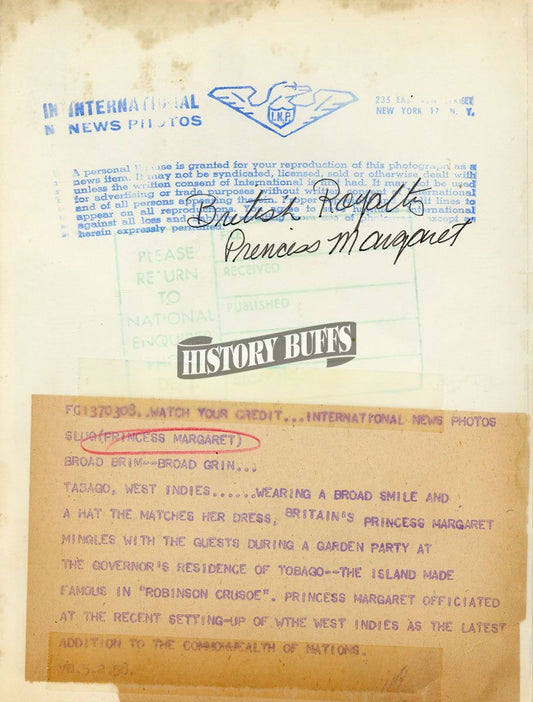 INTERNATIONAL
NEWS PHOTOS
I.N.P.
235 EAST
NEW YORK 17 N. Y.
A personal license is granted for your reproduction of this photograph as a
news item. It may not be syndicated, licensed, sold or otherwise dealt with
unless the written consent of International is had. It may not be used
for advertising or trade purposes without written consent of International
and of all persons appearing therein. lines to
appear on all International
against all loss and
herein expressly permitted.
British Royalty
Princess Margaret
PLEASE
RETURN
TO
NATIONAL
ENQUIRER
RECEIVED
PUBLISHED
HISTORY BUFFS
FC1370308..WATCH YOUR CREDIT...INTERNATIONAL NEWS PHOTOS
SLUG(PRINCESS MARGARET)
BROAD BRIM--BROAD GRIN...
TABAGO, WEST INDIES......WEARING A BROAD SMILE AND
A HAT THE MATCHES HER DRESS, BRITAIN'S PRINCESS MARGARET
MINGLES WITH THE GUESTS DURING A GARDEN PARTY AT
THE GOVERNOR'S RESIDENCE OF TOBAGO--THE ISLAND MADE
FAMOUS IN "ROBINSON CRUSOE". PRINCESS MARGARET OFFICIATED
AT THE RECENT SETTING-UP OF WTHE WEST INDIES AS THE LATEST
ADDITION TO THE COMMONWEALTH OF NATIONS.
5.2.58.